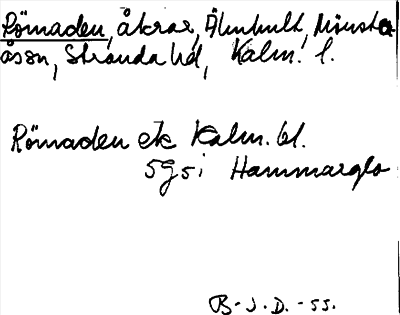 Römaden, åkrar, Älmhult, Mönsterås
åsen, Stranda hd, Kalm. l.
Römaden ek Kalm. bl.
5g5i Hammarglo
B-J.D.-55.